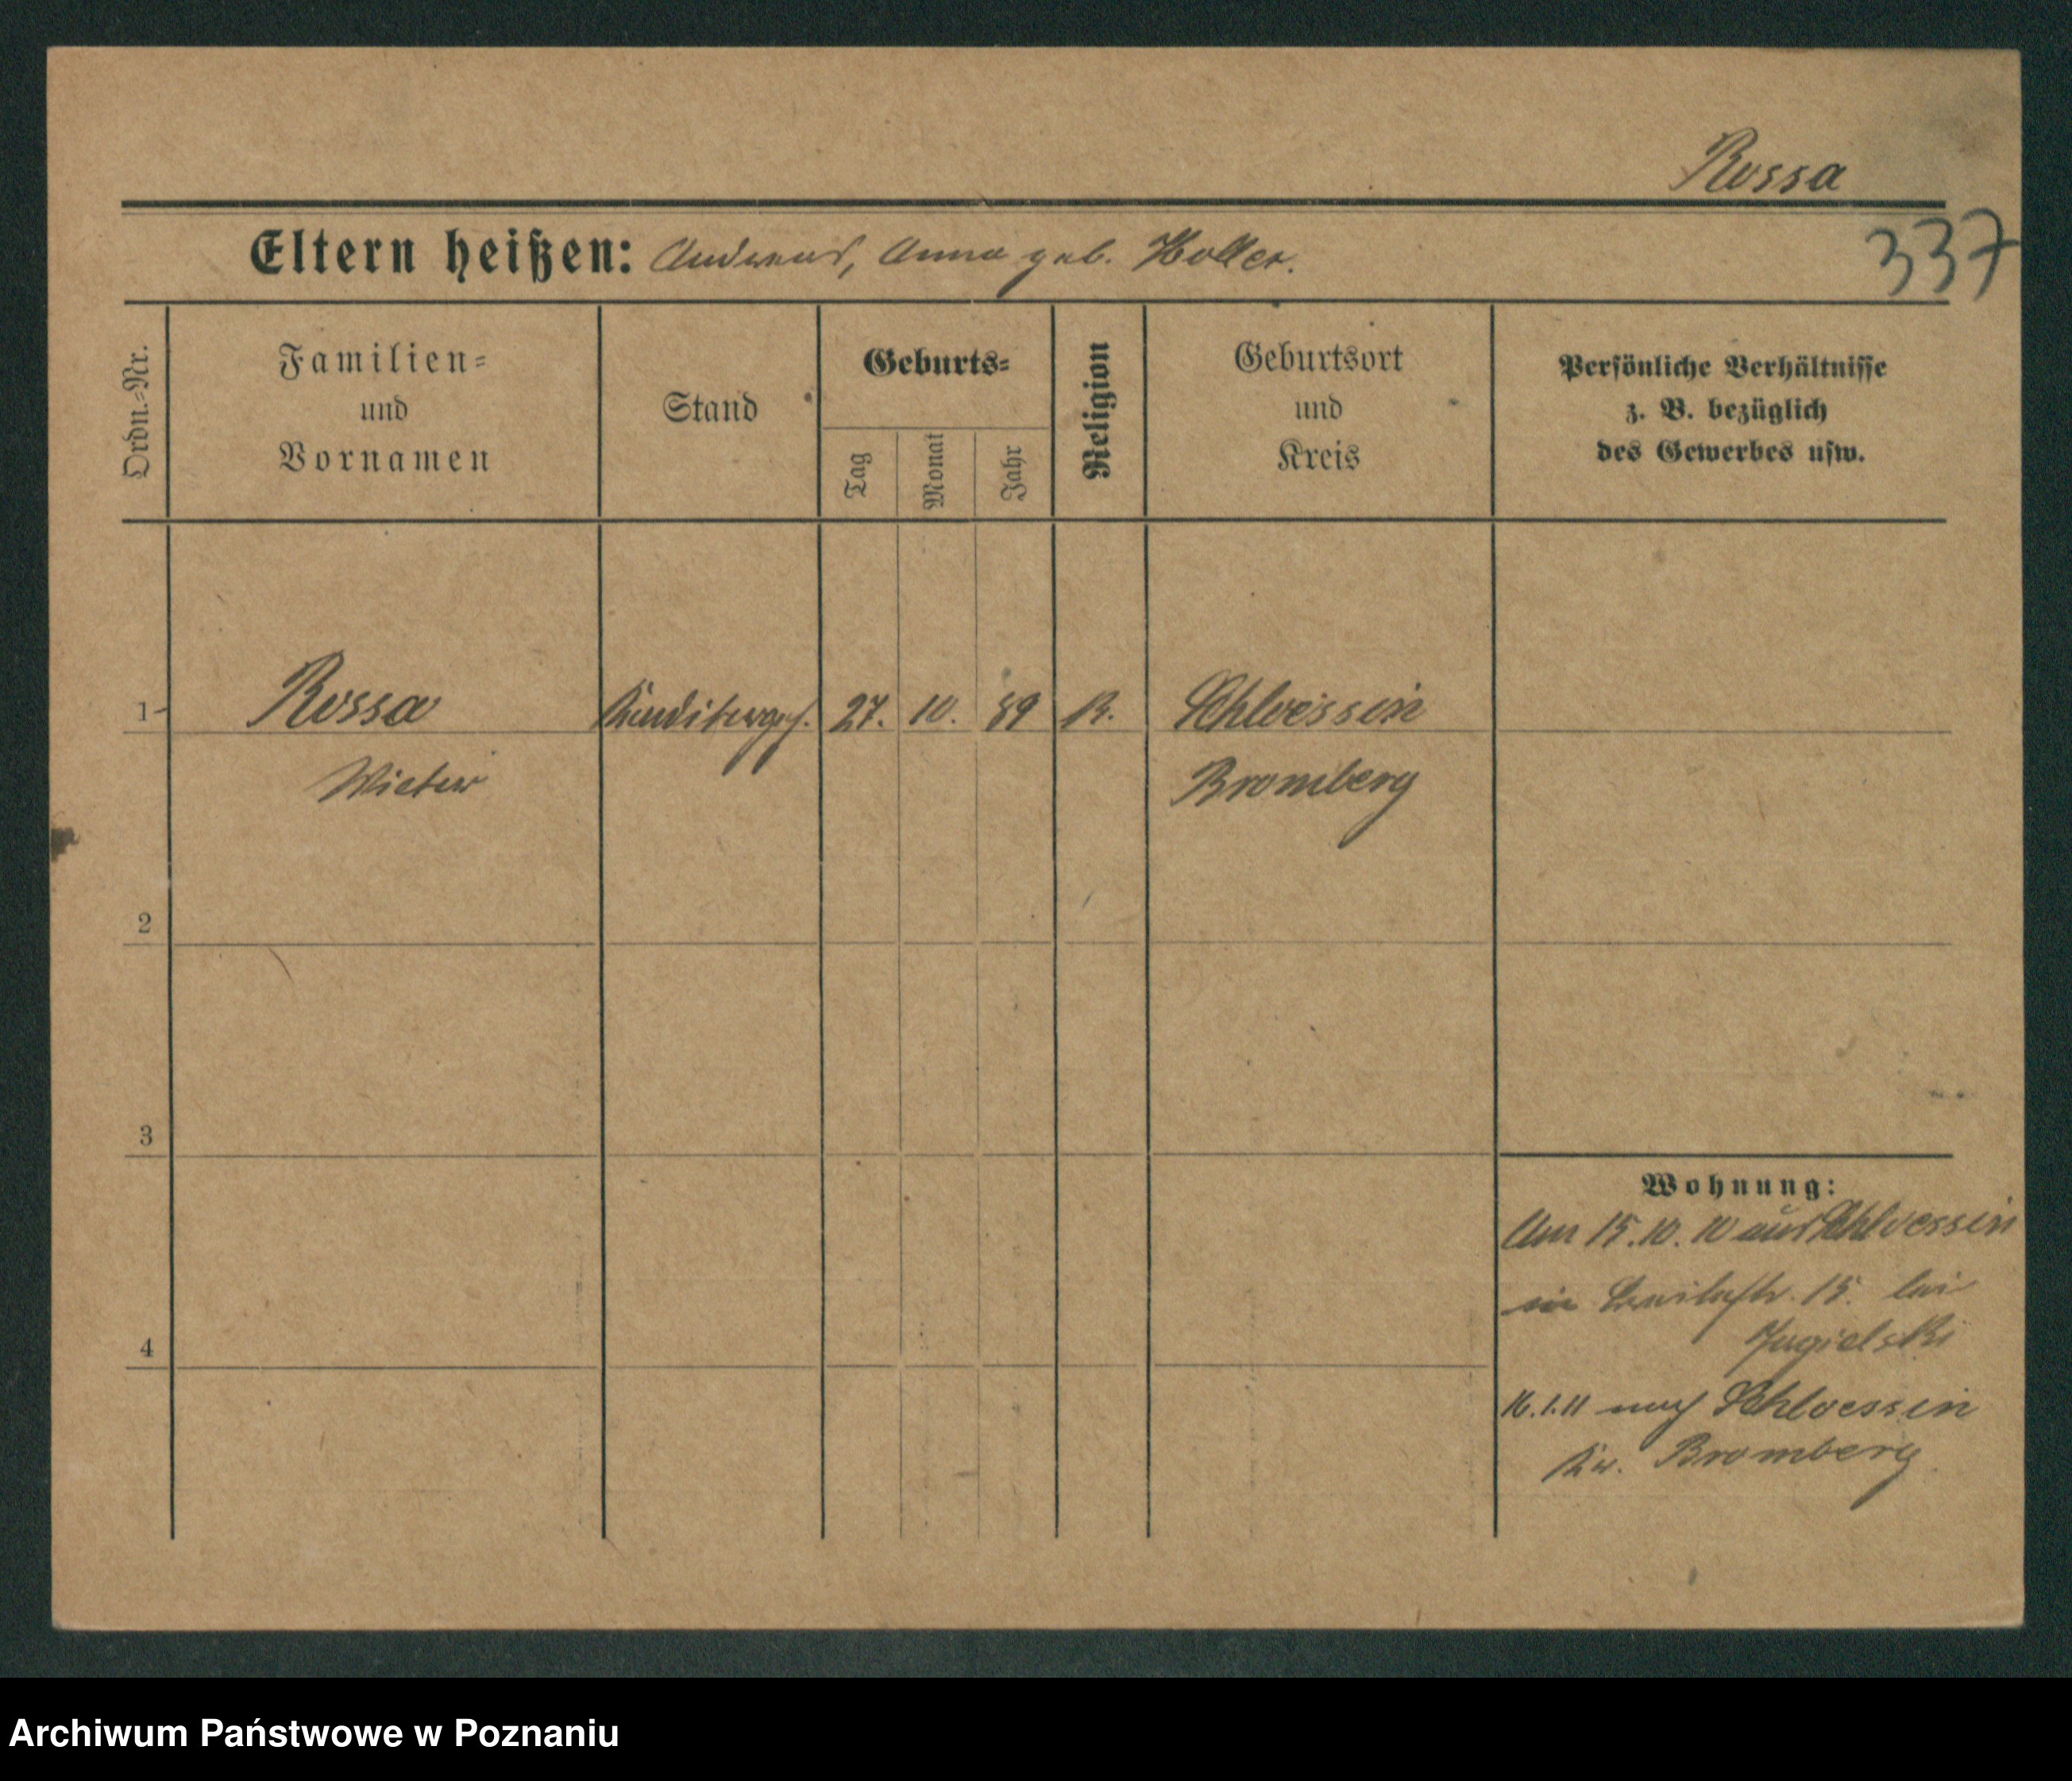 Rossa
Eltern heißen: Andreas, Anna geb. Holler.
337
Ordn.-Nr.
Familien-
und
Vornamen
Stand
Geburts-
Tag
Monat
Jahr
Religion
Geburtsort
und
Kreis
Persönliche Verhältnisse
z. B. bezüglich
des Gewerbes usw.
1 Rossa Konditorgeh. 27. 10. 89 K. Schloessin
Bromberg
2
3
4
Wohnung:
Am 15.10.10 aus Schloessin
15. bei
Jagielski
16.1.11 nach Schloessin
Kr. Bromberg
Archiwum Państwowe w Poznaniu